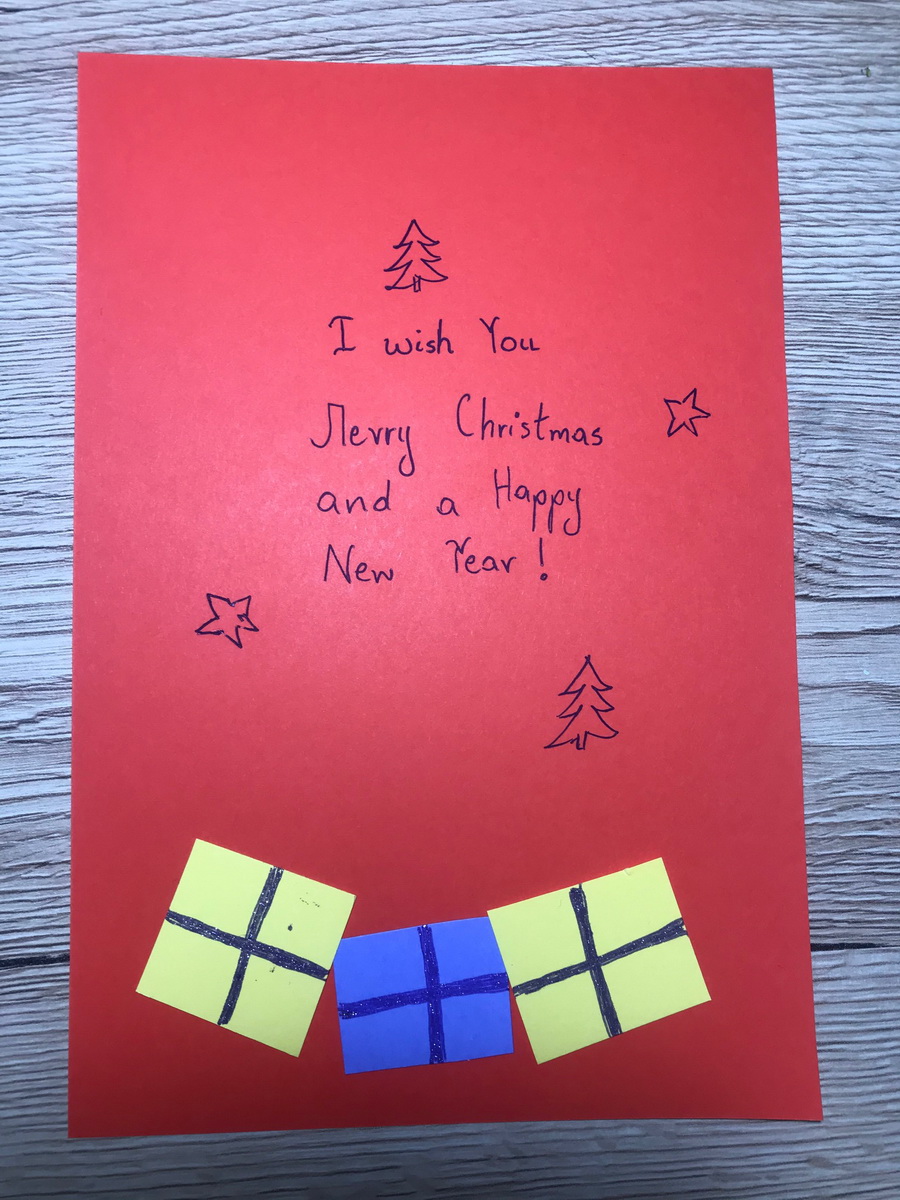 I wish You
Merry Christmas
and a Happy
New Year!